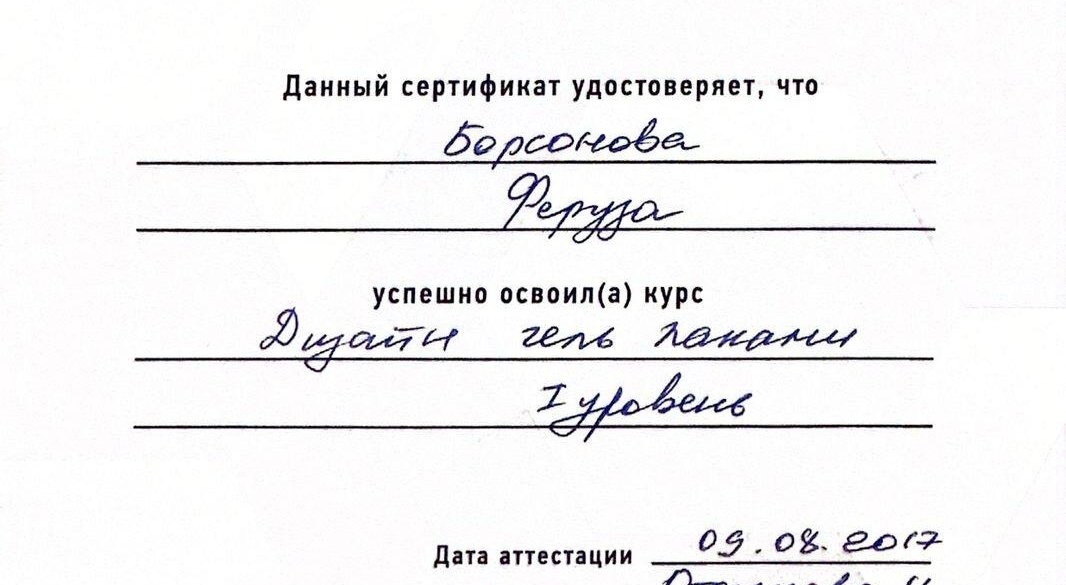 Данный сертификат удостоверяет, что
Борсонова
Феруза
успешно освоил(а) курс
Дизайн гель лаками
I уровень
Дата аттестации 09.08.2017